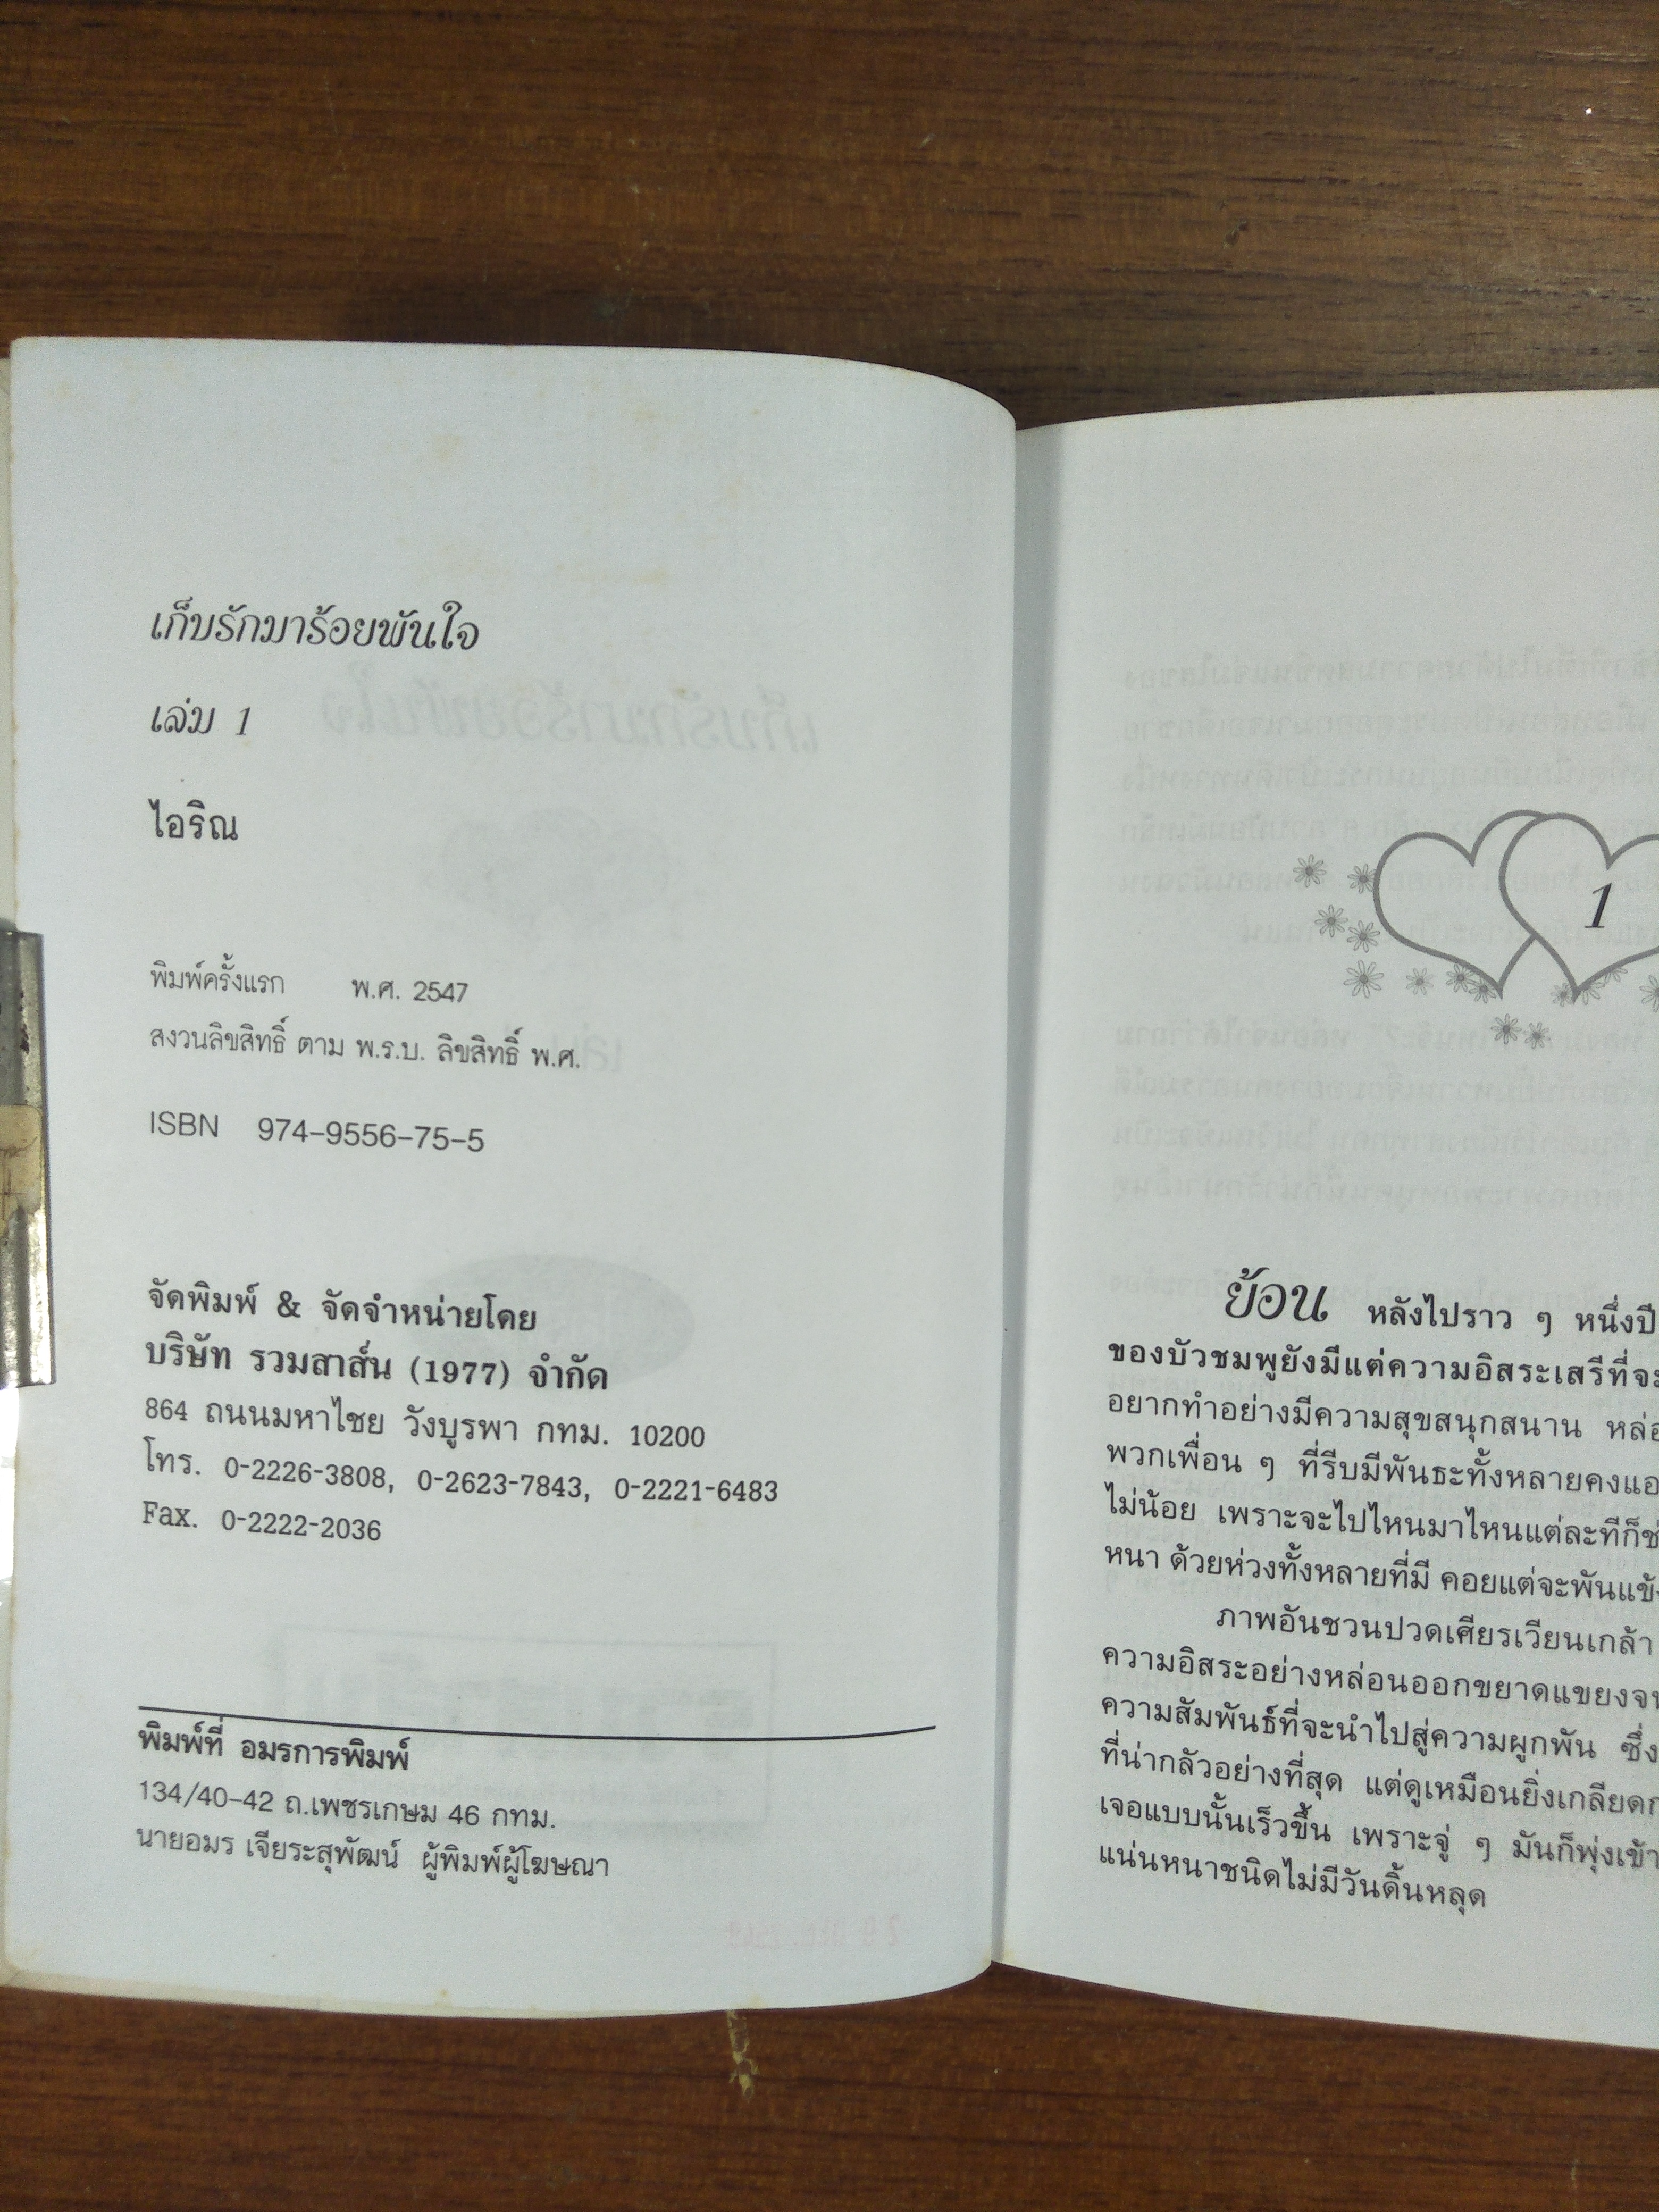 เก็บรักมาร้อยพันใจ
เล่ม 1
ไอริณ
พิมพ์ครั้งแรก พ.ศ. 2547
สงวนลิขสิทธิ์ ตาม พ.ร.บ. ลิขสิทธิ์ พ.ศ.
ISBN 974-9556-75-5
จัดพิมพ์ & จัดจำหน่ายโดย
บริษัท รวมสาส์น (1977) จำกัด
864 ถนนมหาไชย วังบูรพา กทม. 10200
โทร. 0-2226-3808, 0-2623-7843, 0-2221-6483
Fax. 0-2222-2036
พิมพ์ที่ อมรการพิมพ์
134/40-42 ถ.เพชรเกษม 46 กทม.
นายอมร เจียระสุพัฒน์ ผู้พิมพ์ผู้โฆษณา
1
ย้อน หลังไปราว ๆ หนึ่งปี
ของบัวชมพูยังมีแต่ความอิสระเสรีที่จะ
อยากทำอย่างมีความสุขสนุกสนาน หล่อ
พวกเพื่อน ๆ ที่รีบมีพันธะทั้งหลายคงแอ
ไม่น้อย เพราะจะไปไหนมาไหนแต่ละทีก็ช่
หนา ด้วยห่วงทั้งหลายที่มี คอยแต่จะพันแข้ง
ภาพอันชวนปวดเศียรเวียนเกล้า
ความอิสระอย่างหล่อนออกขยาดแขยงจน
ความสัมพันธ์ที่จะนำไปสู่ความผูกพัน ซึ่ง
ที่น่ากลัวอย่างที่สุด แต่ดูเหมือนยิ่งเกลียดก
เจอแบบนั้นเร็วขึ้น เพราะจู่ ๆ มันก็พุ่งเข้า
แน่นหนาชนิดไม่มีวันดิ้นหลุด